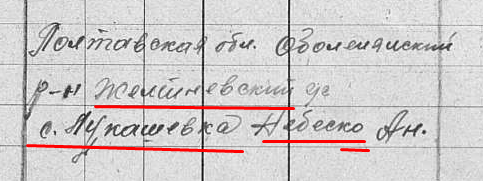 Полтавская обл. Оболенский
р-н Желтневский с/с
с. Лукашевка Небеско Ан.